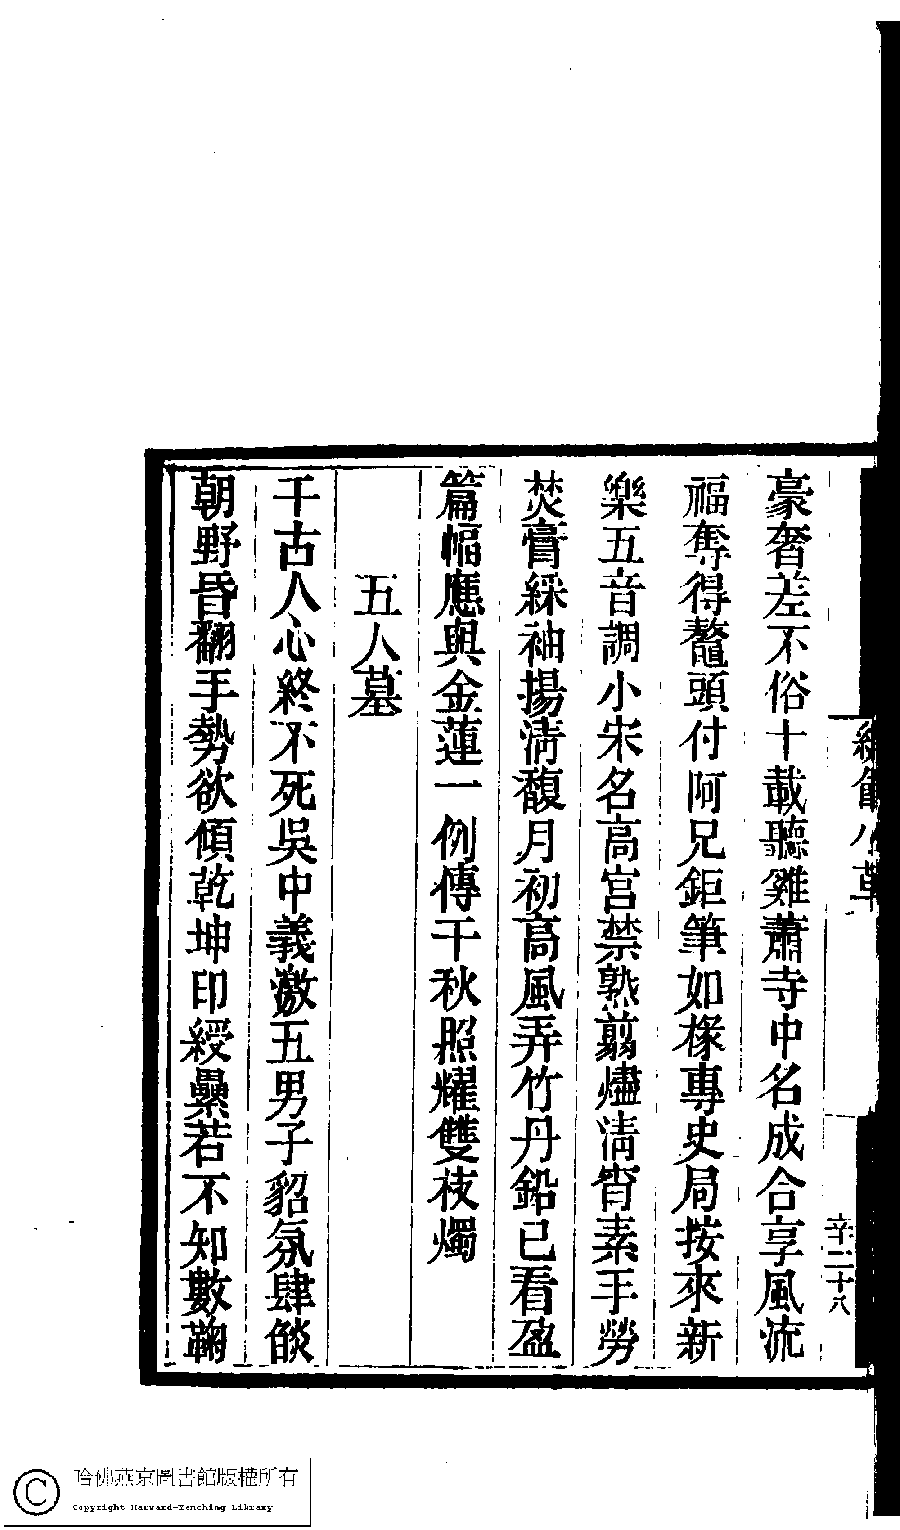 豪奢差不俗十載聽雞蕭寺中名成合享風流
福奪得鼇頭付阿兄鉅筆如椽專史局按來新
樂五音調小宋名高宮禁熟翦燼淸宵素手勞
焚膏綵袖揚淸馥月初高風弄竹丹鉛已看盈
篇幅應與金蓮一例傳千秋照耀雙枝燭
五人墓
千古人心終不死吳中義激五男子貂氛肆燄
朝野昏翻手勢欲傾乾坤印綬纍若不知數鞠
辛二十八
哈佛燕京圖書館版權所有
Copyright Harvard-Yenching Library